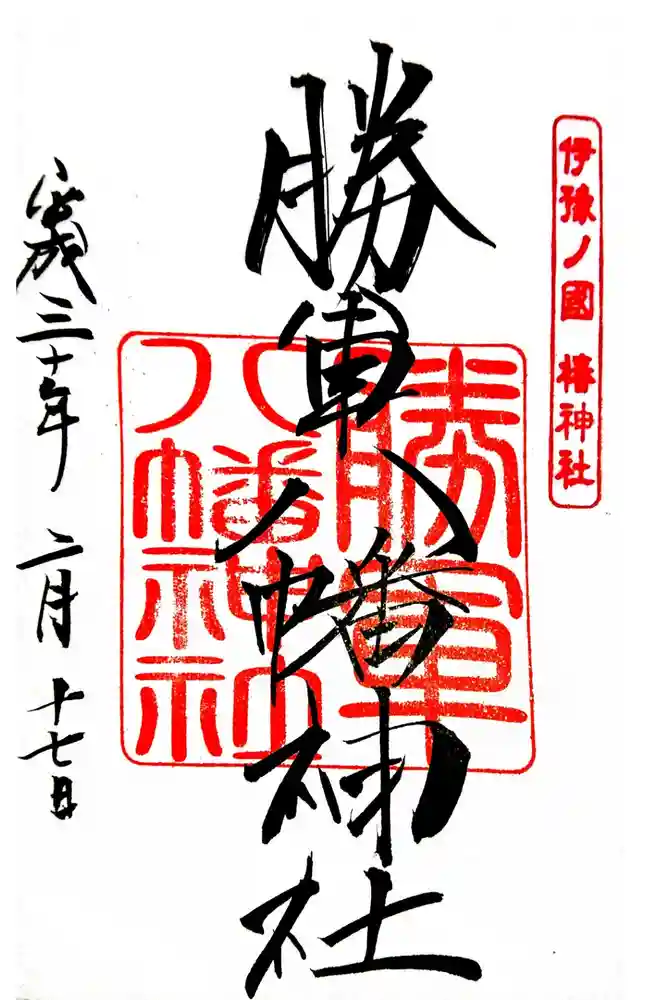 伊豫ノ國 椿神社
勝軍八幡神社
勝軍八幡神社
平成三十年 二月 十七日